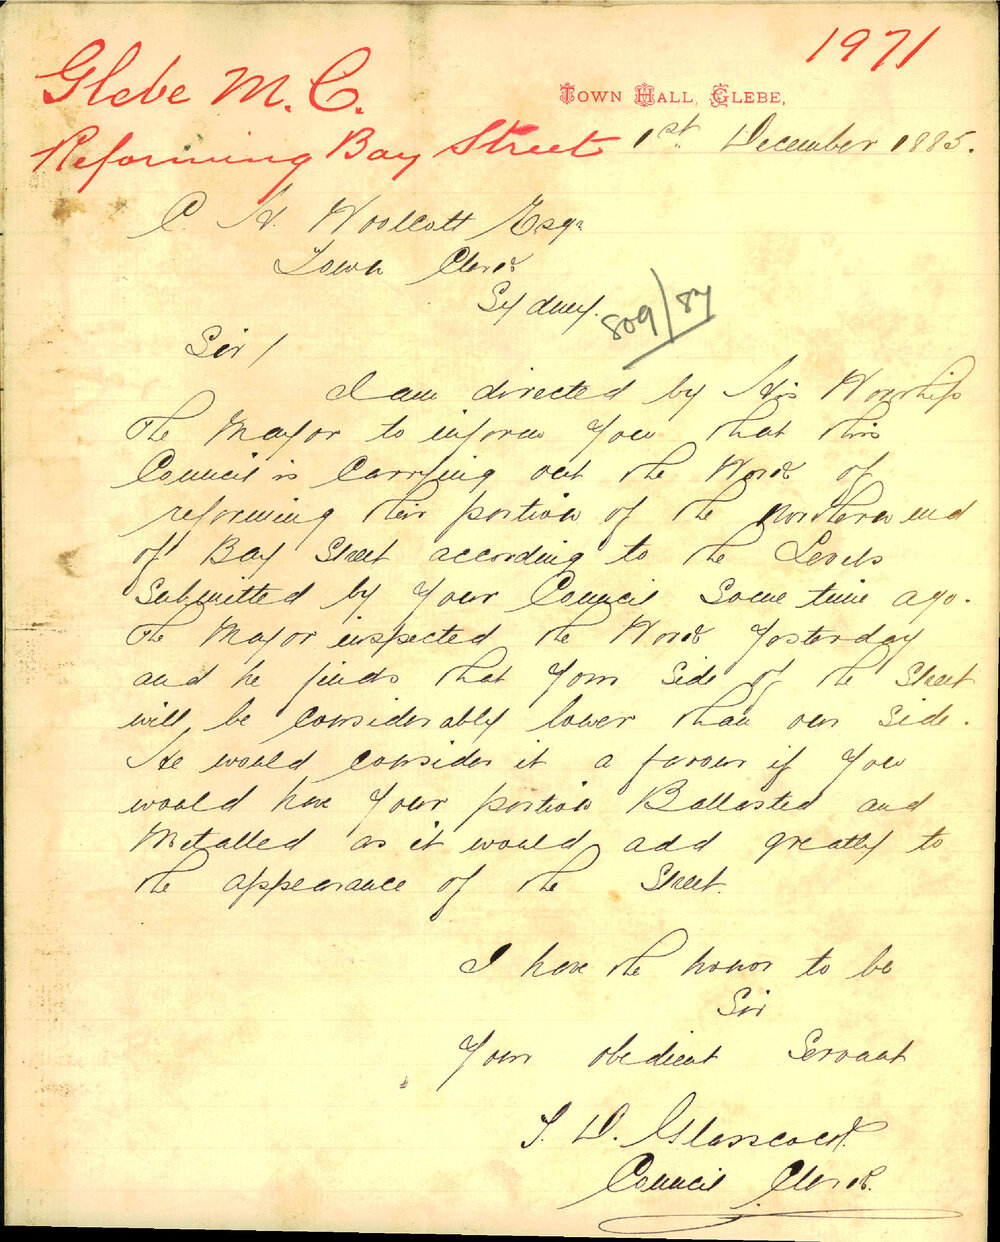 1971
Glebe M. C.
TOWN HALL, GLEBE,
Reforming Bay Street
1st December 1885.
C. H. Woolcott Esqr
Town Clerk
Sydney.
809/87
Sir /
I am directed by His Worship
the Mayor to inform you that this
Council is Carrying out the Work of
reforming their portion of the Northern end
of Bay Street according to the Levels
Submitted by your Council Some time ago.
The Mayor inspected the Work yesterday
and he finds that your Side of the Street
will be Considerably lower than our Side.
He would Consider it a favour if you
would have your portion Ballasted and
Metalled as it would add greatly to
the appearance of the Street.
I have the honor to be
Sir
Your obedient Servant
T. D. Glasscock
Council Clerk.